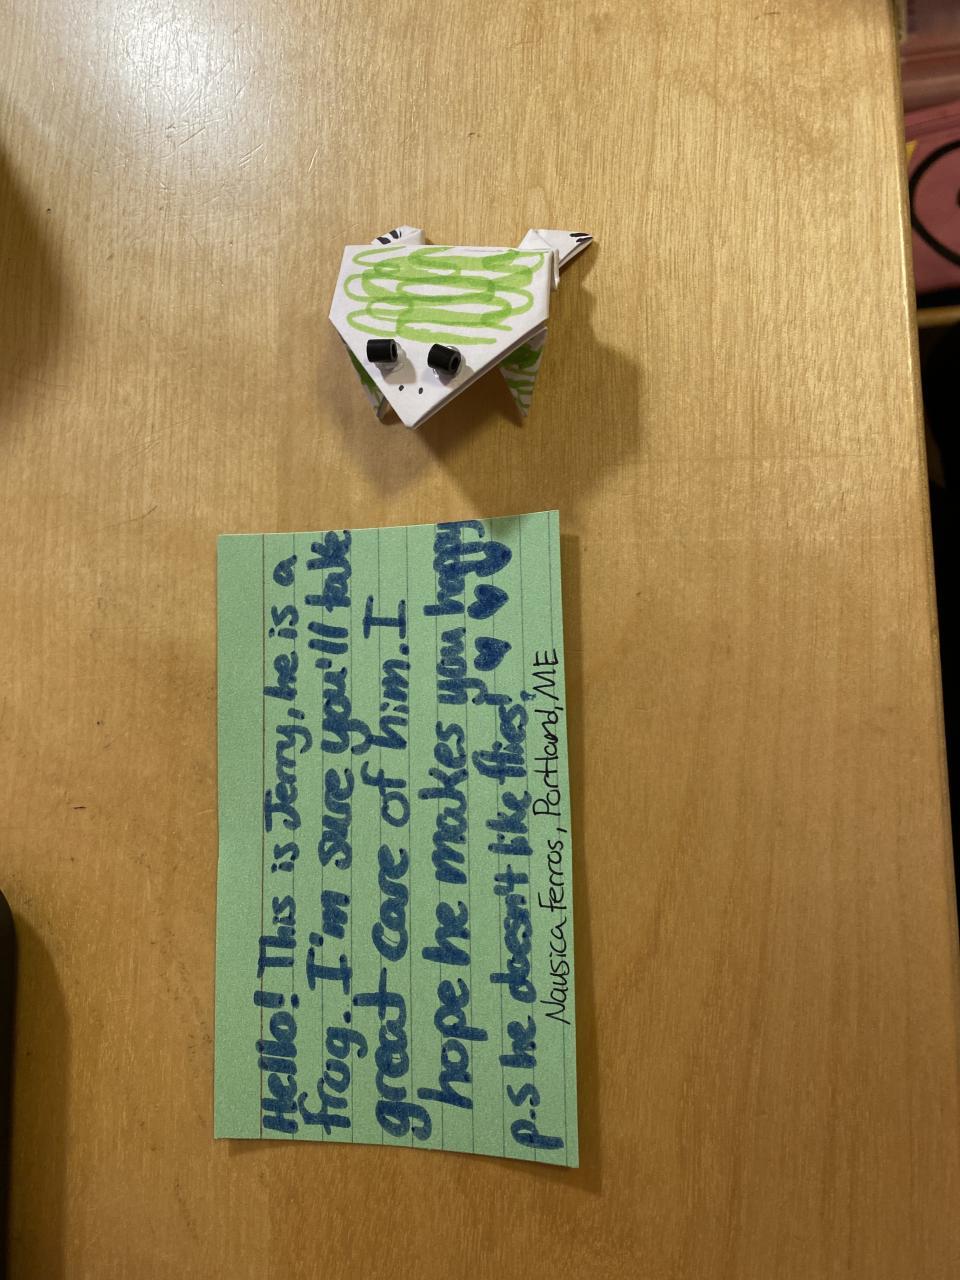 Hello! This is Jerry, he is a
frog. I'm sure you'll take
great care of him. I
hope he makes you happy
p.s he doesn't like flies! ♥ ♥ ♥
Nausica Ferros, Portland, ME